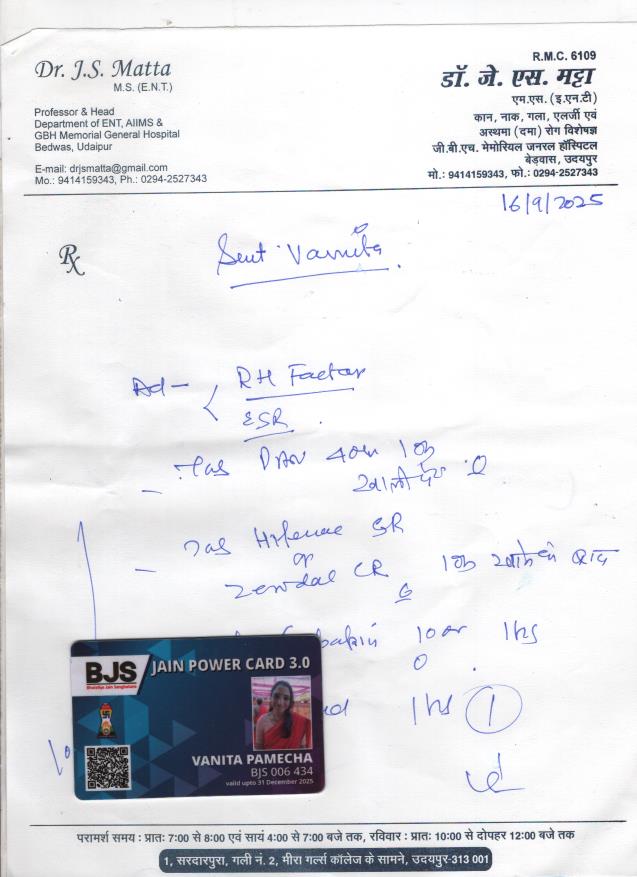 Dr. J.S. Matta
M.S. (E.N.T.)
Professor & Head
Department of ENT, AIIMS &
GBH Memorial General Hospital
Bedwas, Udaipur
E-mail: drjsmatta@gmail.com
Mo.: 9414159343, Ph.: 0294-2527343
R.M.C. 6109
डॉ. जे. एस. मट्टा
एम.एस. (इ.एन.टी)
कान, नाक, गला, एलर्जी एवं
अस्थमा (दमा) रोग विशेषज्ञ
जी.बी.एच. मेमोरियल जनरल हॉस्पिटल
बेड़वास, उदयपुर
मो.: 9414159343, फो.: 0294-2527343
16/9/2025
Rx
RH Factor
ESR
खाली पेट
SR
or
CR
खाने के बाद
1
BJS
Bharatiya Jain Sanghatana
JAIN POWER CARD 3.0
VANITA PAMECHA
BJS 006 434
valid upto 31 December 2025
परामर्श समय : प्रातः 7:00 से 8:00 एवं सायं 4:00 से 7:00 बजे तक, रविवार : प्रातः 10:00 से दोपहर 12:00 बजे तक
1, सरदारपुरा, गली नं. 2, मीरा गर्ल्स कॉलेज के सामने, उदयपुर-313 001